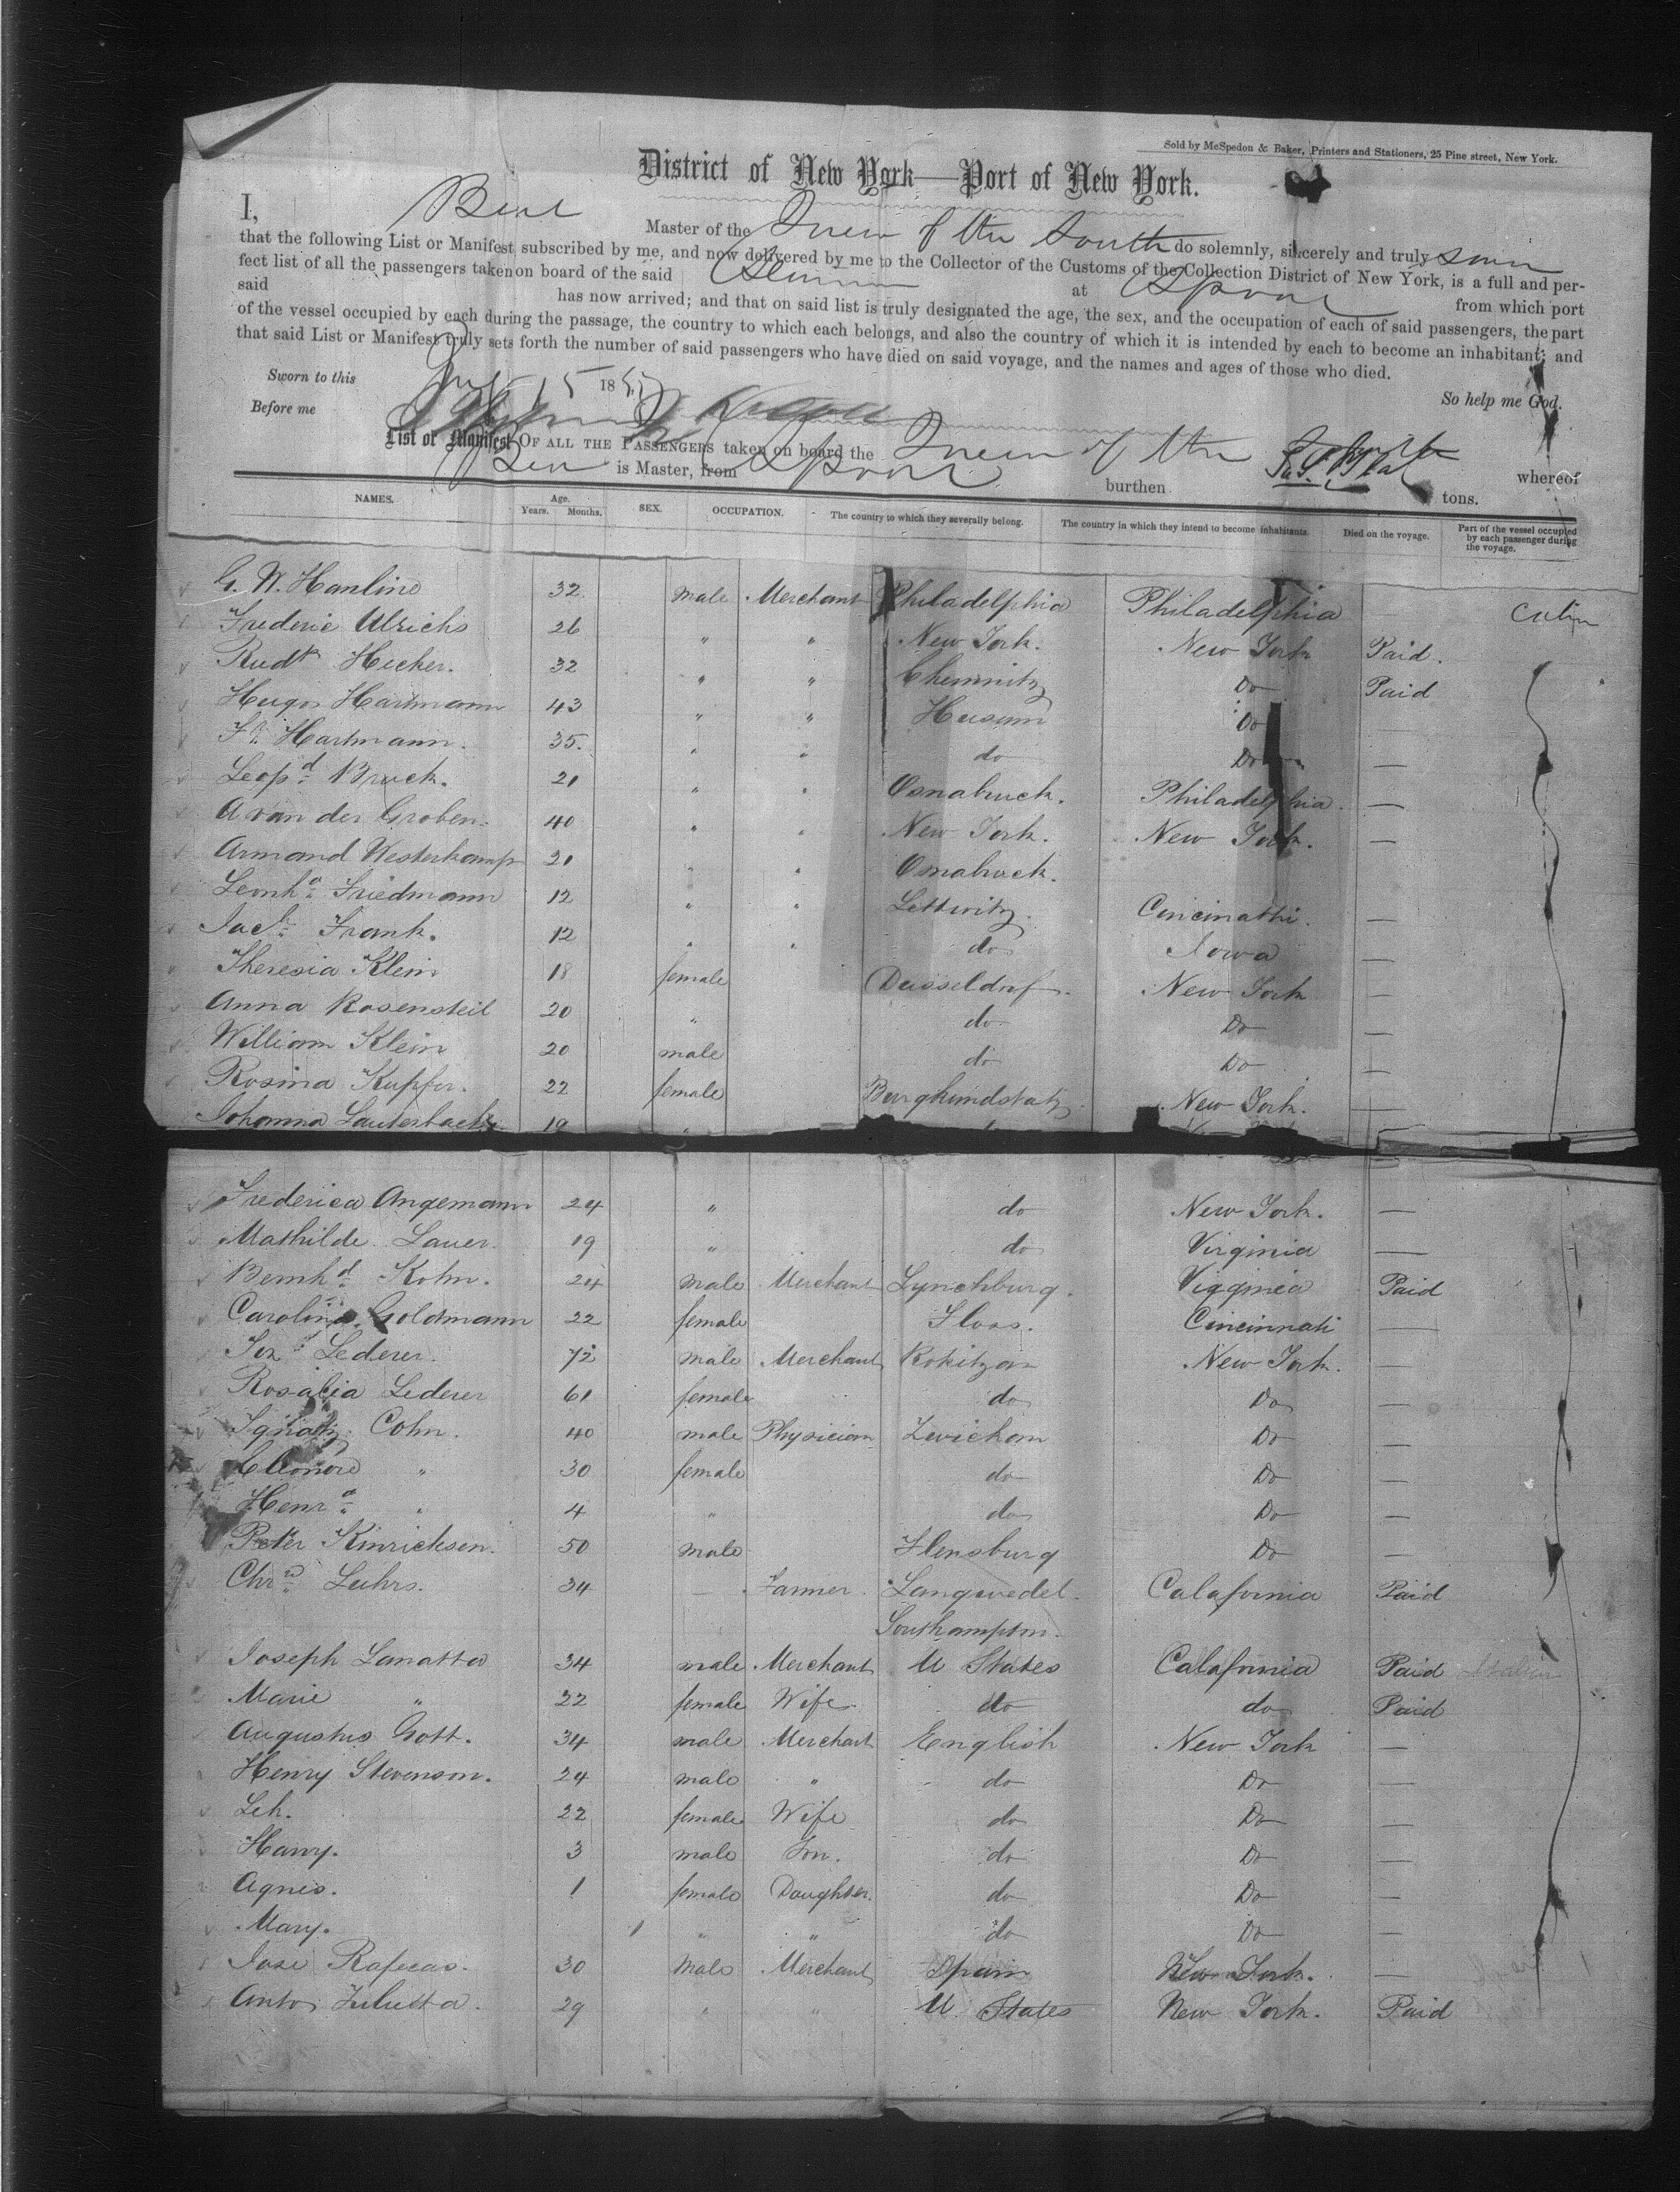 Sold by McSpedon & Baker, Printers and Stationers, 25 Pine street, New York.
District of New York—Port of New York.
I, Master of the Queen of the South do solemnly, sincerely and truly swear
that the following List or Manifest subscribed by me, and now delivered by me to the Collector of the Customs of the Collection District of New York, is a full and per-
fect list of all the passengers taken on board of the said at from which port
said has now arrived; and that on said list is truly designated the age, the sex, and the occupation of each of said passengers, the part
of the vessel occupied by each during the passage, the country to which each belongs, and also the country of which it is intended by each to become an inhabitant; and
that said List or Manifest truly sets forth the number of said passengers who have died on said voyage, and the names and ages of those who died.
Sworn to this 15 185 So help me God.
Before me
List or Manifest OF ALL THE PASSENGERS taken on board the Queen of the South whereof
is Master, from burthen tons.
NAMES. Age. Years. Months. SEX. OCCUPATION. The country to which they severally belong. The country in which they intend to become inhabitants. Died on the voyage. Part of the vessel occupied by each passenger during the voyage.
G. W. Hanline 32 male Merchant Philadelphia Philadelphia Cabin
Frederic Ulrichs 26 " " New York. New York Paid.
Rudh Hecker. 32 " " Chemnitz Do Paid
Hugo Hartmann 43 " " Husum Do —
Hartmann. 35. " " do Do —
Leopd Bruck. 21 " " Osnabruck. Philadelphia. —
A van der Groben. 40 " " New York. New York. —
Armand Westerkamp 21 " " Osnabruck.
Friedmann 12 " " Lettwitz. Cincinatti. —
Jacb Frank. 12 " " do Iowa —
Theresia Klein 18 female Dusseldorf. New York —
Anna Rosensteil 20 " do Do —
William Klein 20 male do Do —
Rosina Kupfer. 22 female Burgkundstatz. New York. —
Johanna Lauterbach 19 "
Frederica Angemann 24 " do New York. —
Mathilde Lauer. 19 " do Virginia —
Bernhd Kohn. 24 male Merchant Lynchburg. Virginia Paid
Caroline Goldmann 22 female Floss. Cincinnati —
Lederer. 72 male Merchant Rokitzan New York. —
Rosalia Lederer 61 female do Do —
Ignatz Cohn. 40 male Physician Zwickau Do —
Eleonore " 30 female do Do —
Henra " 4 " do Do —
Peter Hinricksen. 50 male Flensburg Do —
Chrn Luhrs. 34 — Farmer. Langwedel. Calafornia Paid
Southampton.
Joseph Lanatta 34 male Merchant U States Calafornia Paid
Marie " 22 female Wife. do do Paid
Augustus Gott. 34 male Merchant English New York —
Henry Stevenson. 24 male " do Do —
Leh. 22 female Wife do Do —
Harry. 3 male Son. do Do —
Agnes. 1 female Daughter. do Do —
Mary. 1 " " do Do —
Jose Rafecas. 30 Male Merchant Spain New York. —
Anto Julietta. 29 " " U. States New York. Paid